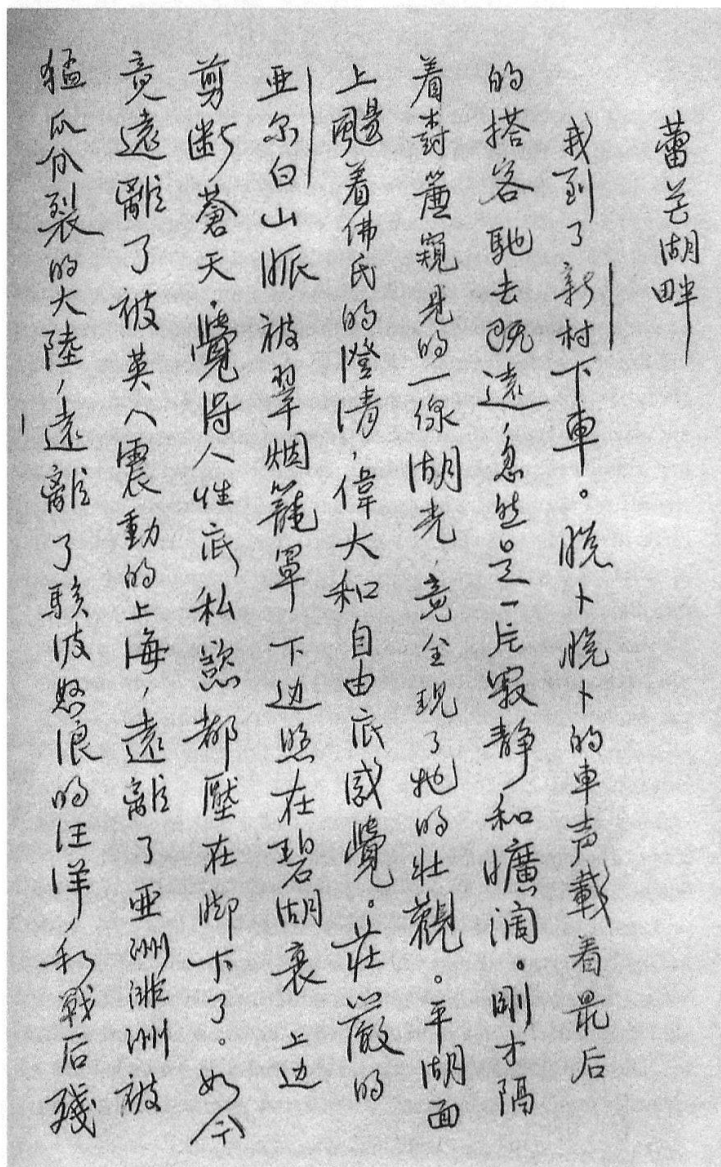 蕾芒湖畔
我到了新村下車。脱卜脱卜的車声載着最后
的搭客馳去既遠,忽然是一片寂静和曠阔。刚才隔
着對簾窺見的一線湖光,竟全現了牠的壮觀。平湖面
上颺着佛氏的澄清,偉大和自由底感覺。莊嚴的
亜尔白山脈被翠烟籠罩下边照在碧湖裹上边
剪断蒼天,覺得人性底私慾都壓在脚下了。如今
竟遠離了被英人震動的上海,遠離了亜洲非洲被
猛瓜分裂的大陸,遠離了駭波怒浪的汪洋和戰后殘